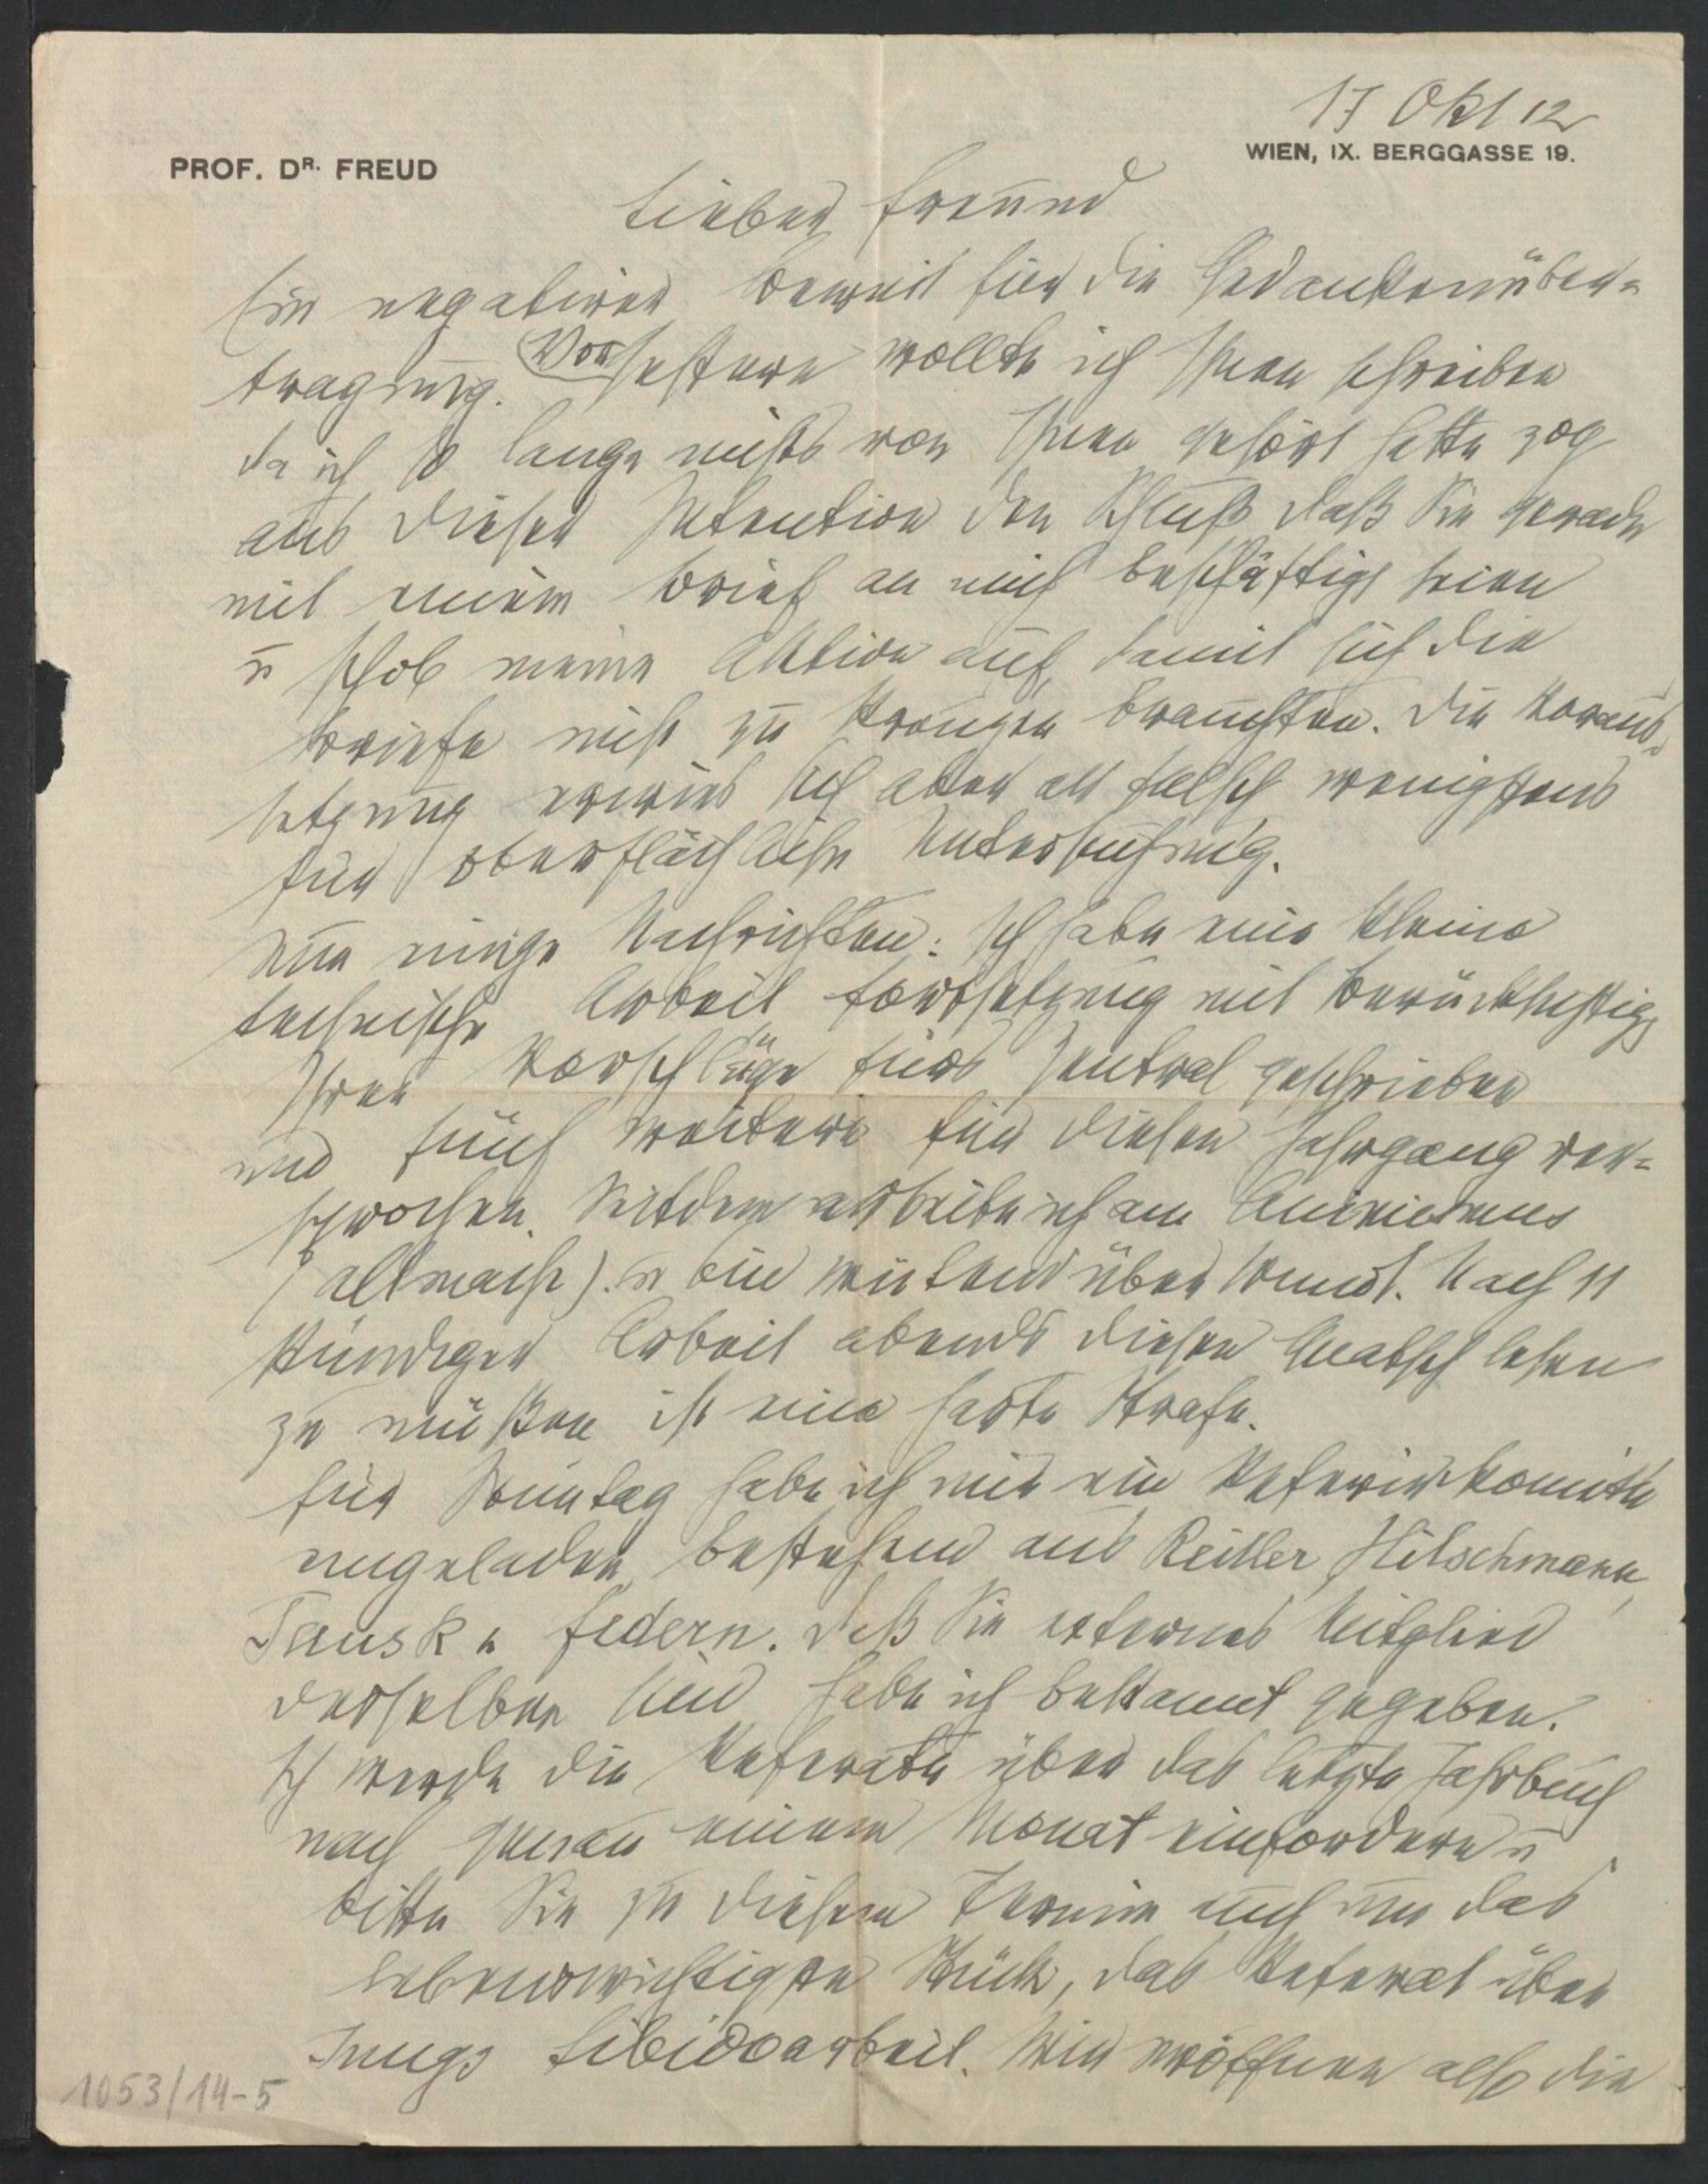 17 Okt 12
PROF. DR. FREUD
WIEN, IX. BERGGASSE 19.
Lieber Freund
Ein negativer Beweis für die Gedankenüber=
tragung. Vorgestern wollte ich Ihnen schreiben
da ich so lange nichts von Ihnen gehört hatte zog
aus dieser Intention den Schluß daß Sie gerade
mit einem Brief an mich beschäftigt seien
u schob meine Aktion auf, damit sich die
Briefe nicht zu kreuzen brauchten. Die Voraus=
setzung erwies sich aber als falsch wenigstens
für oberflächliche Untersuchung.
Nun einige Nachrichten: Ich habe eine kleine
technische Arbeit Fortsetzung mit Berücksichtigg
Ihrer Vorschläge fürs Zentral geschrieben
und fünf weitere für diesen Jahrgang ver=
sprochen. Seitdem arbeite ich am Animismus
(Allmacht). u bin wütend über Wundt. Nach 11
stündiger Arbeit abends diesen Quatsch lesen
zu müßen ist eine harte Strafe.
Für Sonntag habe ich mir ein Referirkomite
eingeladen bestehend aus Reitler, Hitschmann,
Tausk u Federn. Daß Sie externes Mitglied
desselben sind habe ich bekannt gegeben.
Ich werde die Referate über das letzte Jahrbuch
nach genau einem Monat einfordern u
bitte Sie zu diesem Termin auch um das
lebenswichtigste Stück, das Referat über
Jungs Libidoarbeit. Wir eröffnen also die
1053/14-5